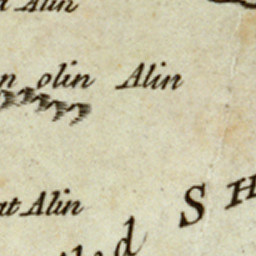 Alin
olin Alin
at Alin
S H